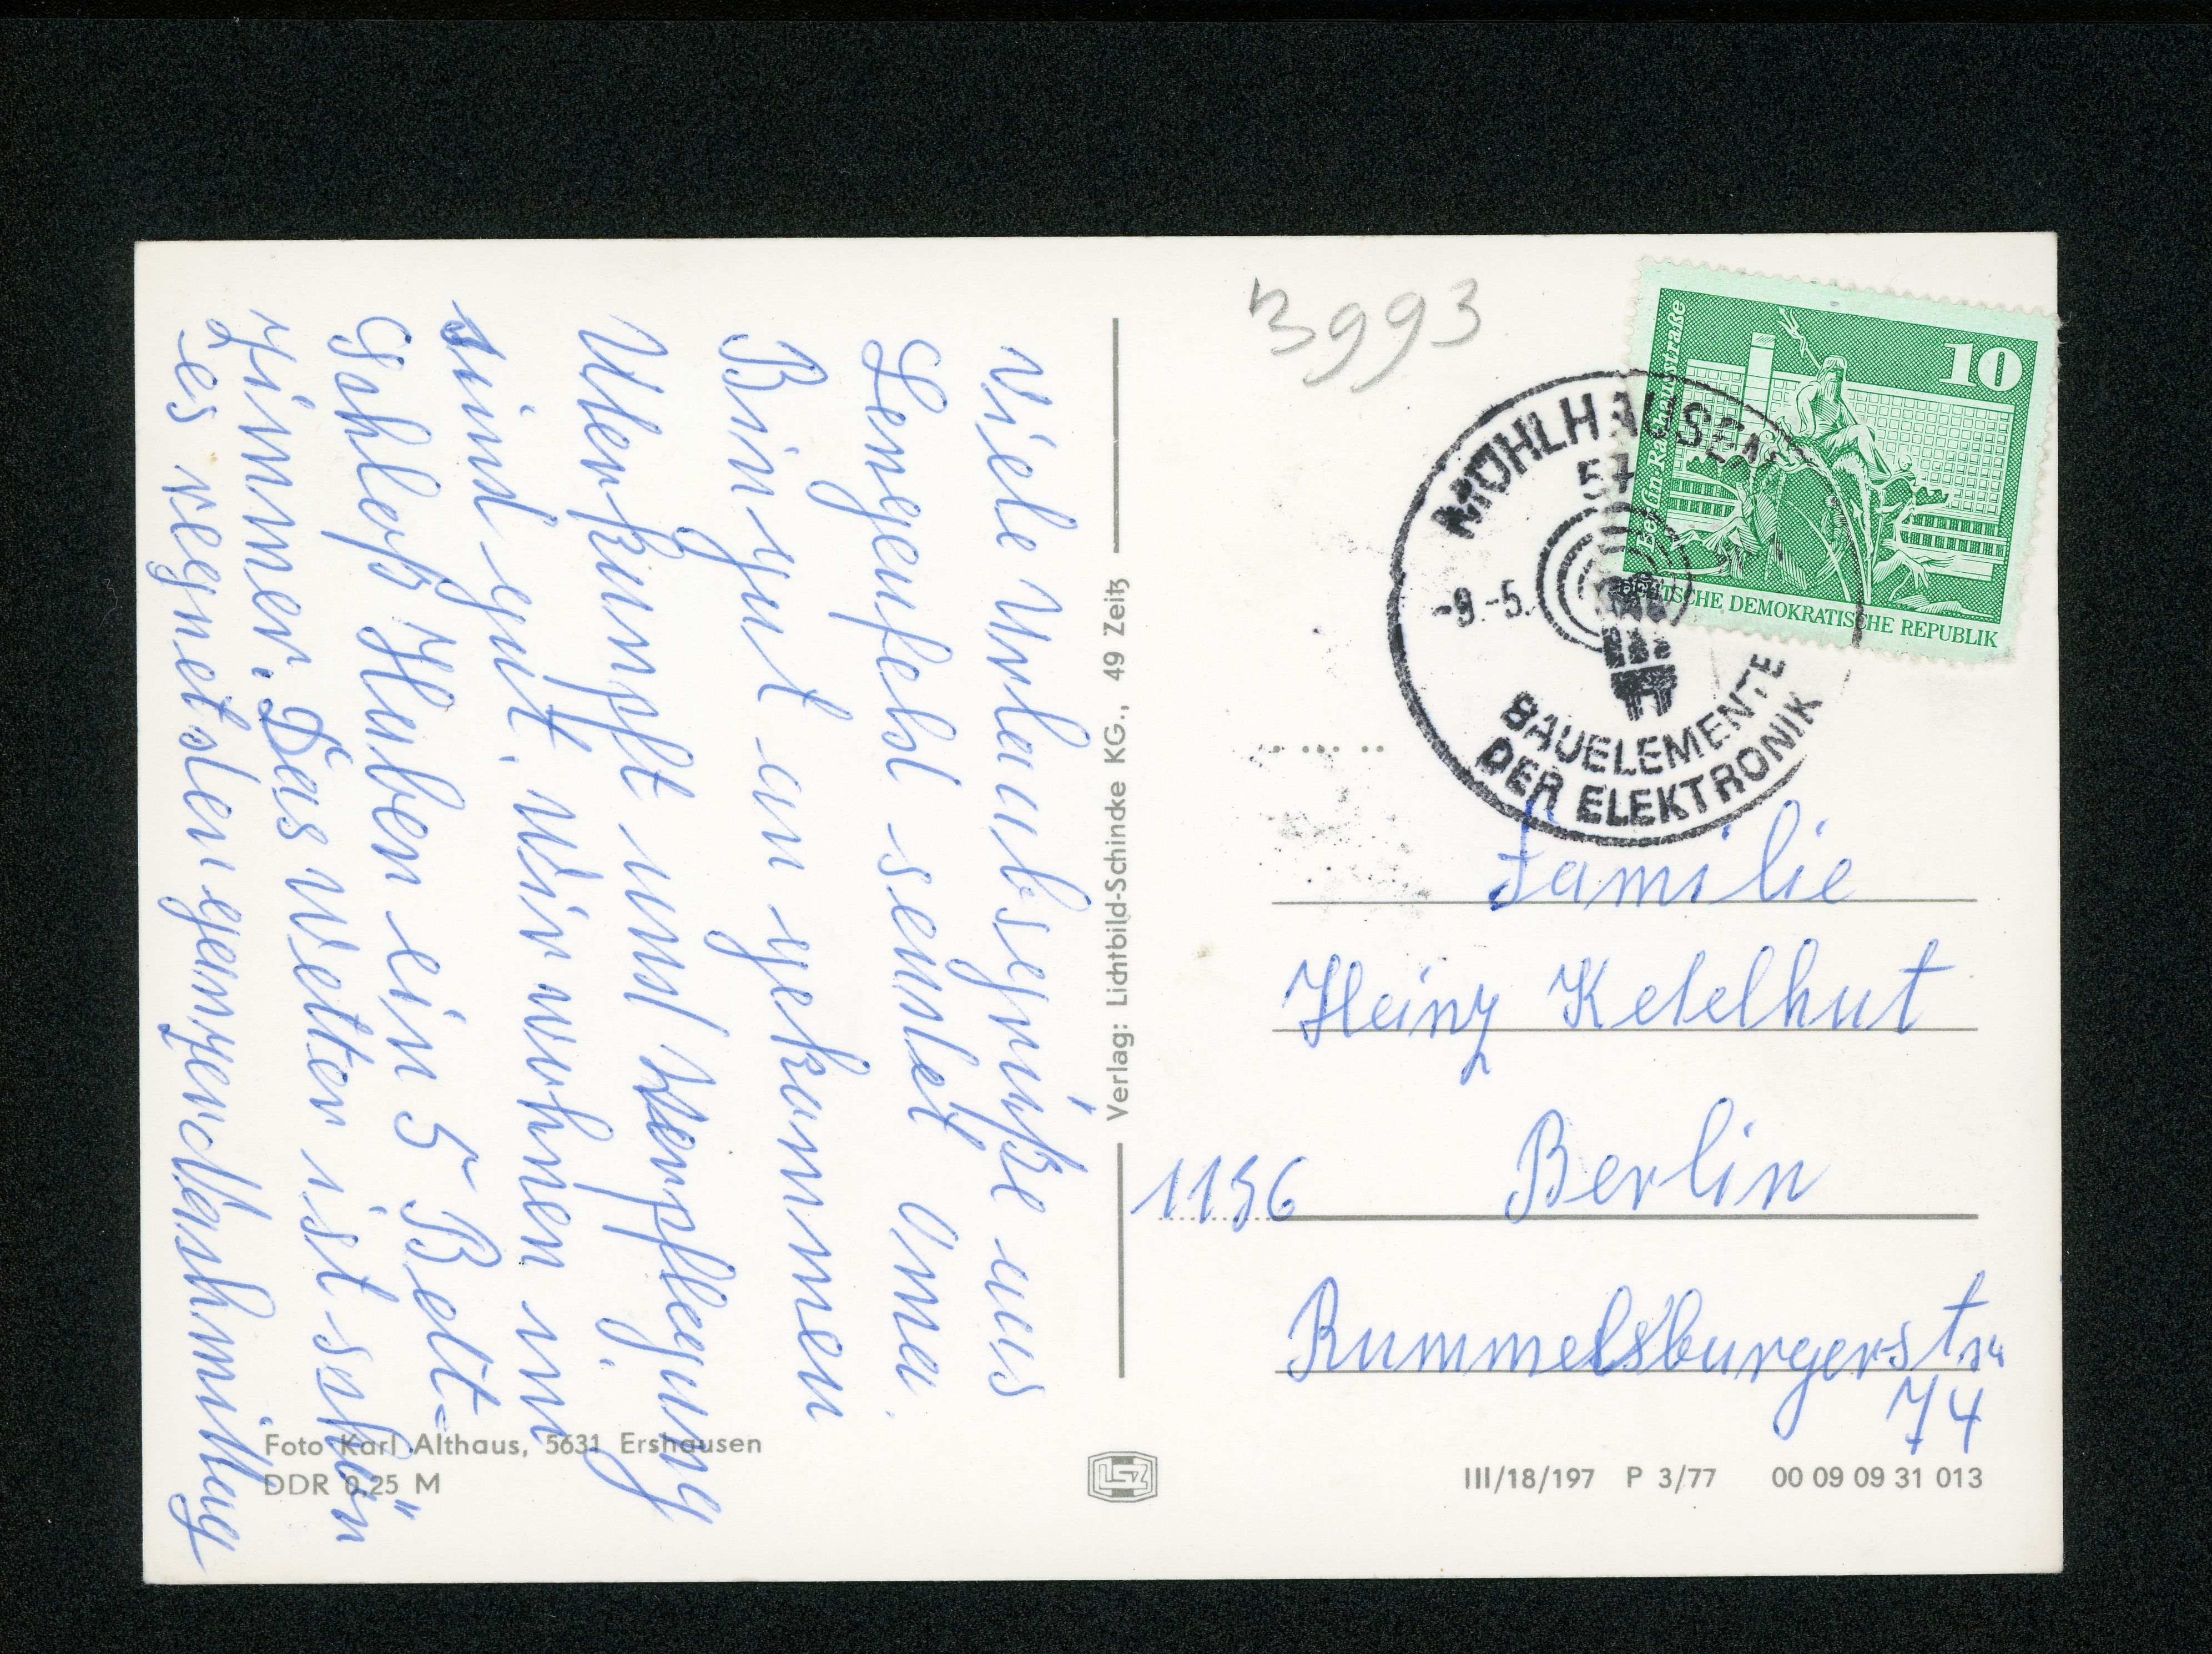 B993
10
Berlin-Rathausstraße
DEUTSCHE DEMOKRATISCHE REPUBLIK
MÜHLHAUSEN
57
-9.-5.
BAUELEMENTE
DER ELEKTRONIK
Viele Urlaubsgrüße aus
Lengenfeld sendet Oma.
Bin gut an gekommen
Uterkunft und Verpflegung
sind gut. Wir wohnen im
Schloß Haben ein 5 Bett=
Zimmer. Das Wetter ist schön
es regnet den ganzen Nachmittag
Verlag: Lichtbild-Schincke KG., 49 Zeitz
Familie
Heinz Ketelhut
1136 Berlin
Rummelsburgerstr
74
Foto Karl Althaus, 5631 Ershausen
DDR 0.25 M
LSZ
III/18/197 P 3/77 00 09 09 31 013